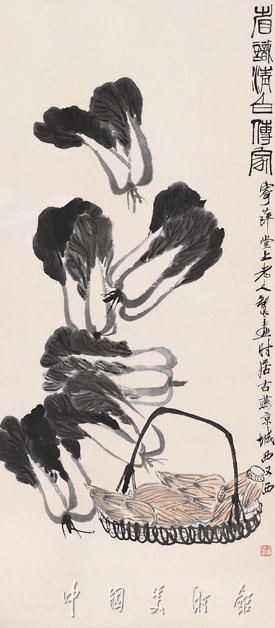 省識清白傳家
寄萍堂上老人製畫時居古燕京城西又西
中國美術館